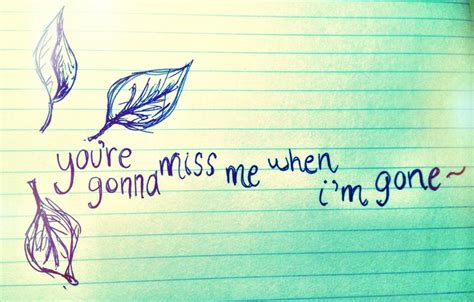 you're
gonna miss me when
i'm gone~